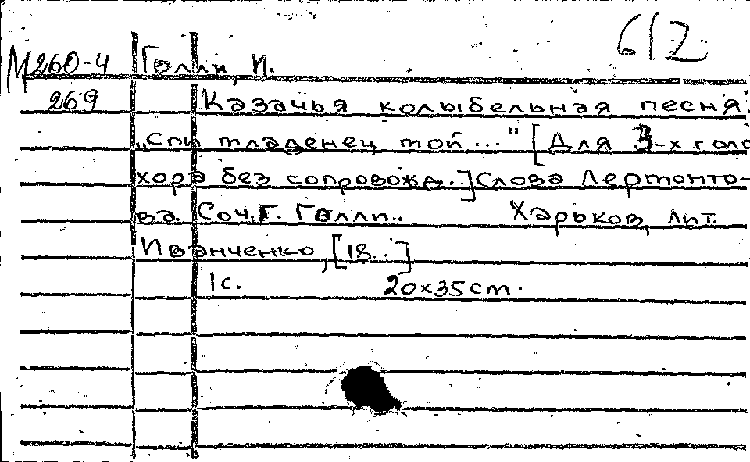 612
М260-4 Галли, И.
269 Казачья колыбельная песня.
„Спи младенец мой..." [Для 3-х голо
хора без сопровожд.] Слова Лермонто-
ва. Соч. Г. Галли.. Харьков, лит.
Иванченко, [18..]
1с. 20х35см.